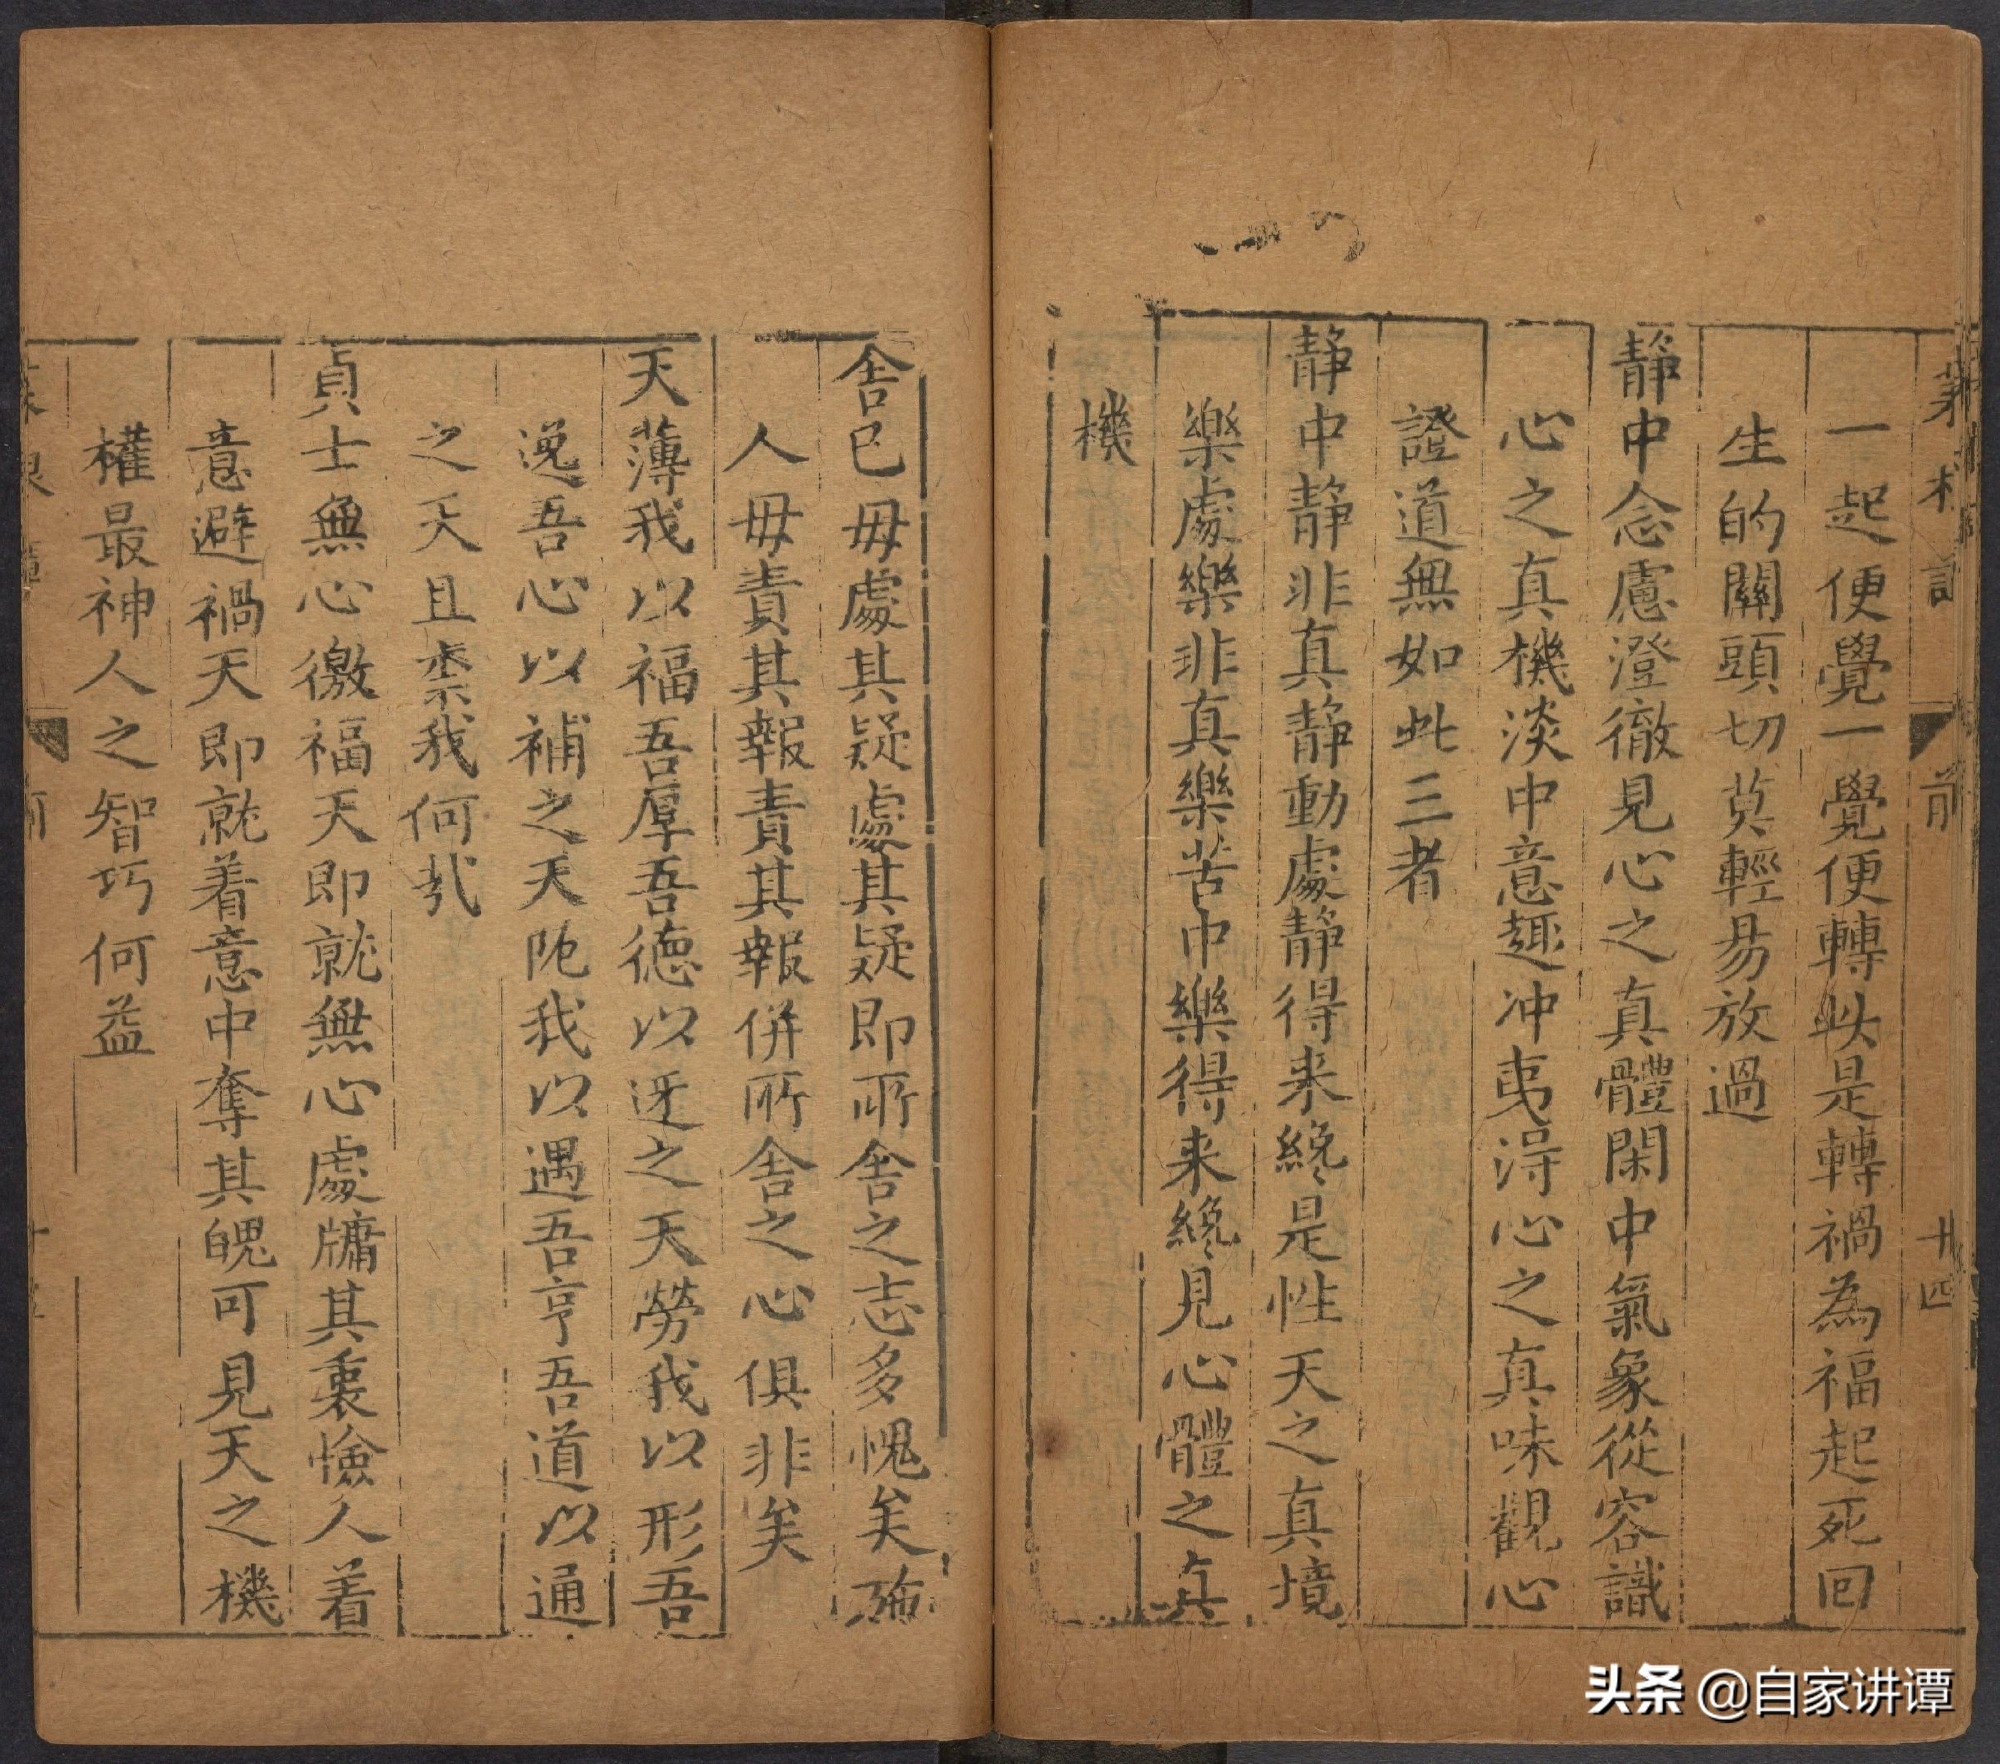 菜根譚 前 十四
一起便覺一覺便轉此是轉禍為福起死回
生的關頭切莫輕易放過
靜中念慮澄徹見心之真體閑中氣象從容識
心之真機淡中意趣冲夷淂心之真味觀心
證道無如此三者
靜中靜非真靜動處靜得来纔是性天之真境
樂處樂非真樂苦中樂得来纔見心體之真
機
舍已毋處其疑處其疑即所舍之志多愧矣施
人毋責其報責其報併所舍之心俱非矣
天薄我以福吾厚吾德以迓之天勞我以形吾
逸吾心以補之天阨我以遇吾亨吾道以通
之天且柰我何㢤
貞士無心徼福天即就無心處牖其衷憸人着
意避禍天即就着意中奪其魄可見天之機
權最神人之智巧何益
头条 @自家讲谭